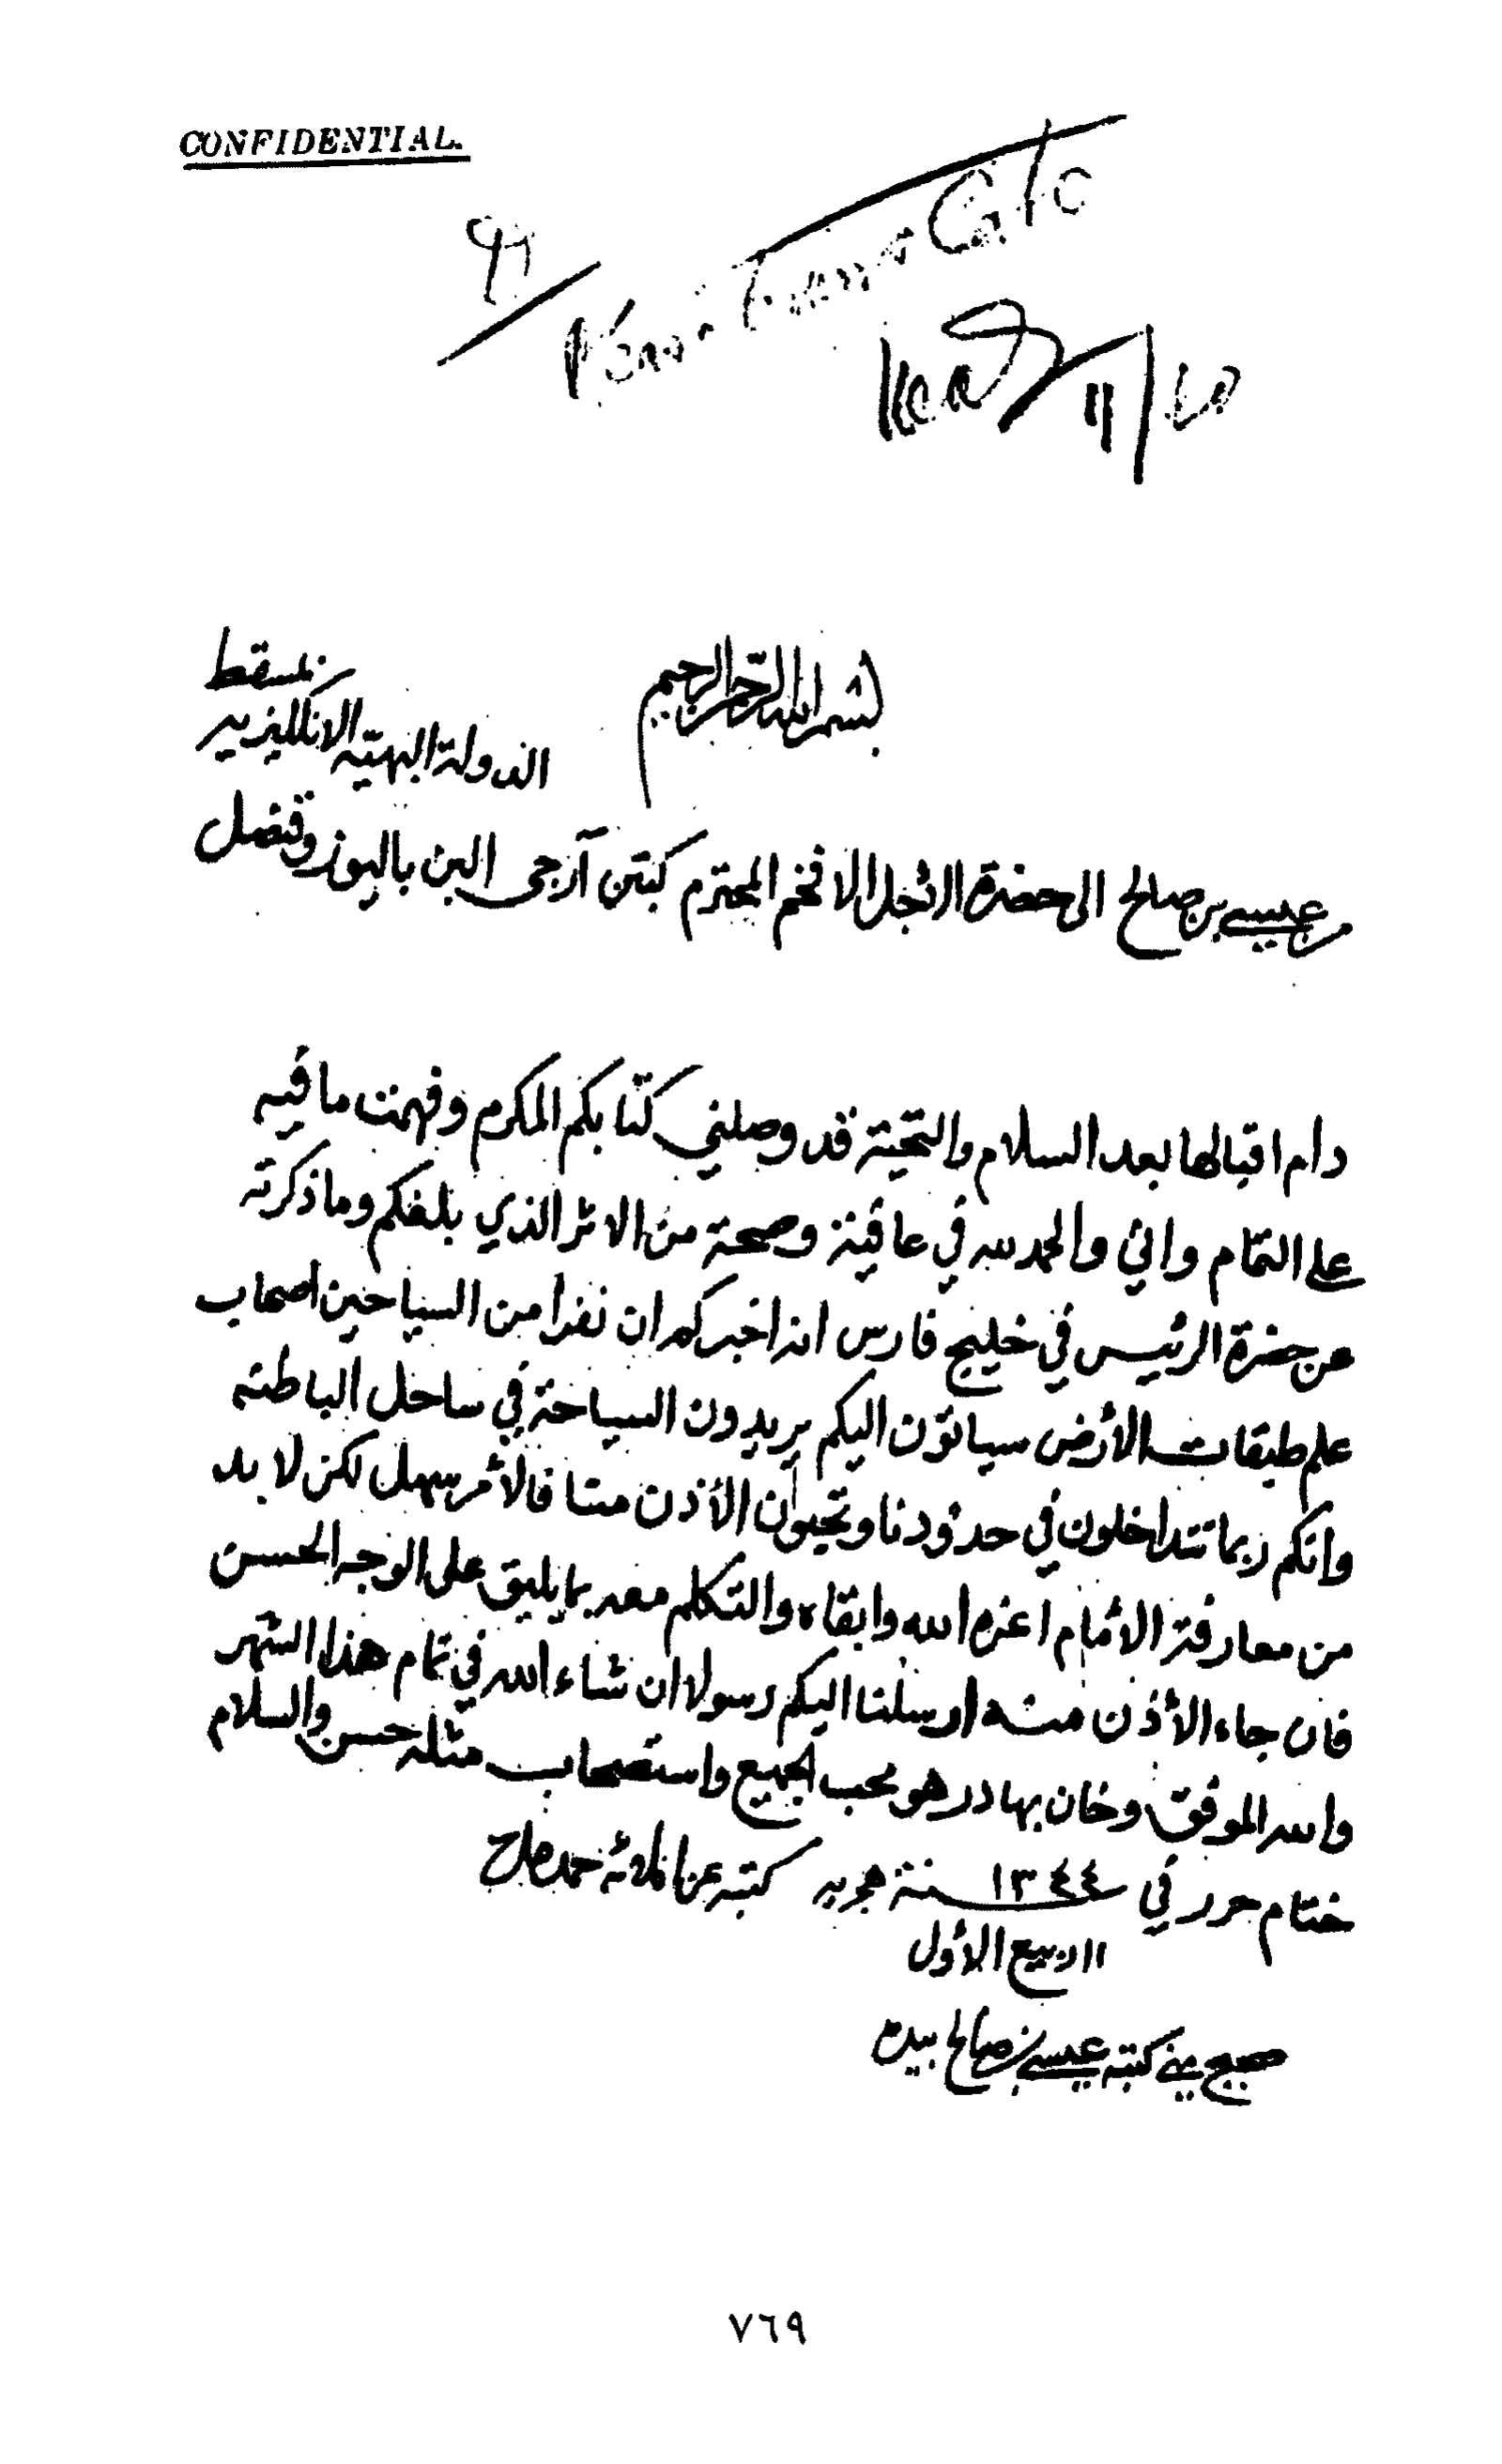 CONFIDENTIAL.
بسم الله الرحمن الرحيم
بمسقط
الدولة البهية الانكليزيه
من عيسى بن صالح الى حضرة الأجل الافخم المحترم كبتن آرجى البن باليوز وقنصل
دام اقبالها بعد السلام والتحية قد وصلني كتابكم المكرم وفهمت ما فيه
على التمام واني والحمد لله في عافية وصحة من الاثر الذي بلغكم وما ذكرته
عن حضرة الرئيس في خليج فارس انه اخبركم ان نفرا من السياحين اصحاب
علم طبقات الأرض سياتون اليكم يريدون السياحة في ساحل الباطنه
وانكم ربما تتداخلون في حدودنا وتحبون الأذن منا فالأمر سهل لكن لا بد
من معارفة الأمام اعزه الله وابقاه والتكلم معه بما يليق على الوجه الحسن
فان جاء الأذن منه ارسلنا اليكم رسولا ان شاء الله في تمام هذا الشهر
والله الموفق وخان بهادر هو محب الجميع واستصحاب مثله حسن والسلام
ختام حرر في ١٣٤٤ سنة هجريه كتبه عن
١١ ربيع الأول
صحيح مني كتبه عيسى بن صالح بيده
٧٦٩